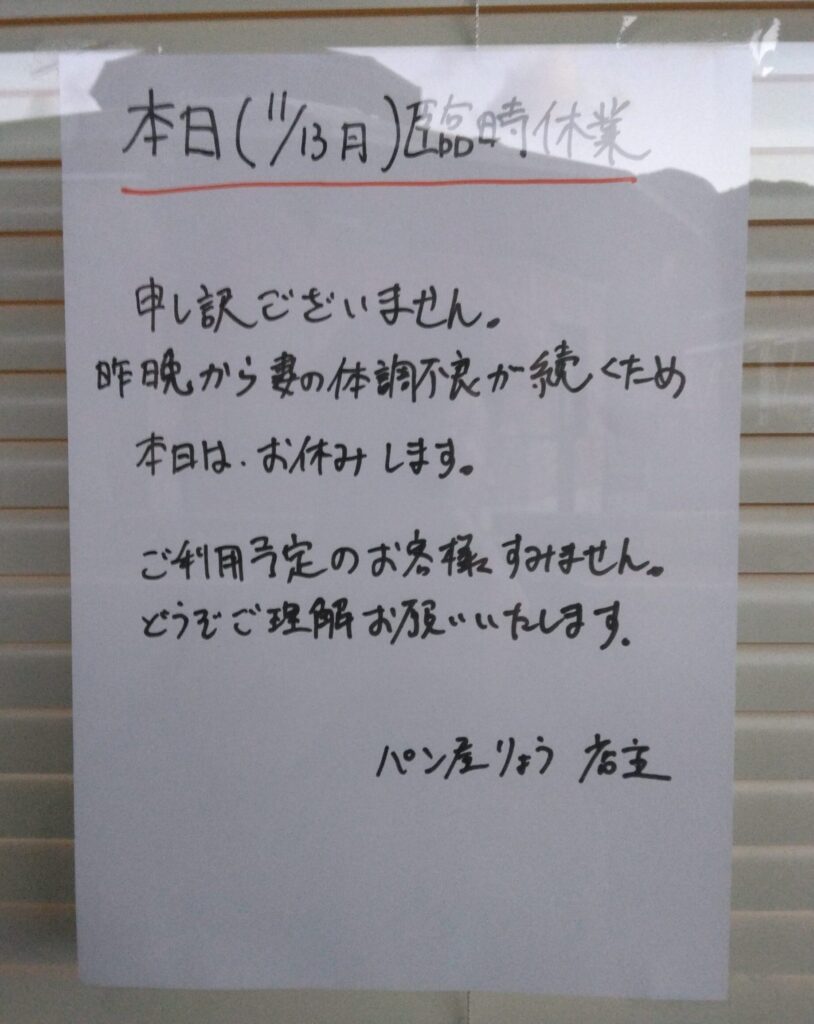 本日(11/13月)臨時休業
申し訳ございません。
昨晩から妻の体調不良が続くため
本日は、お休みします。
ご利用予定のお客様すみません。
どうぞご理解お願いいたします。
パン屋りょう 店主